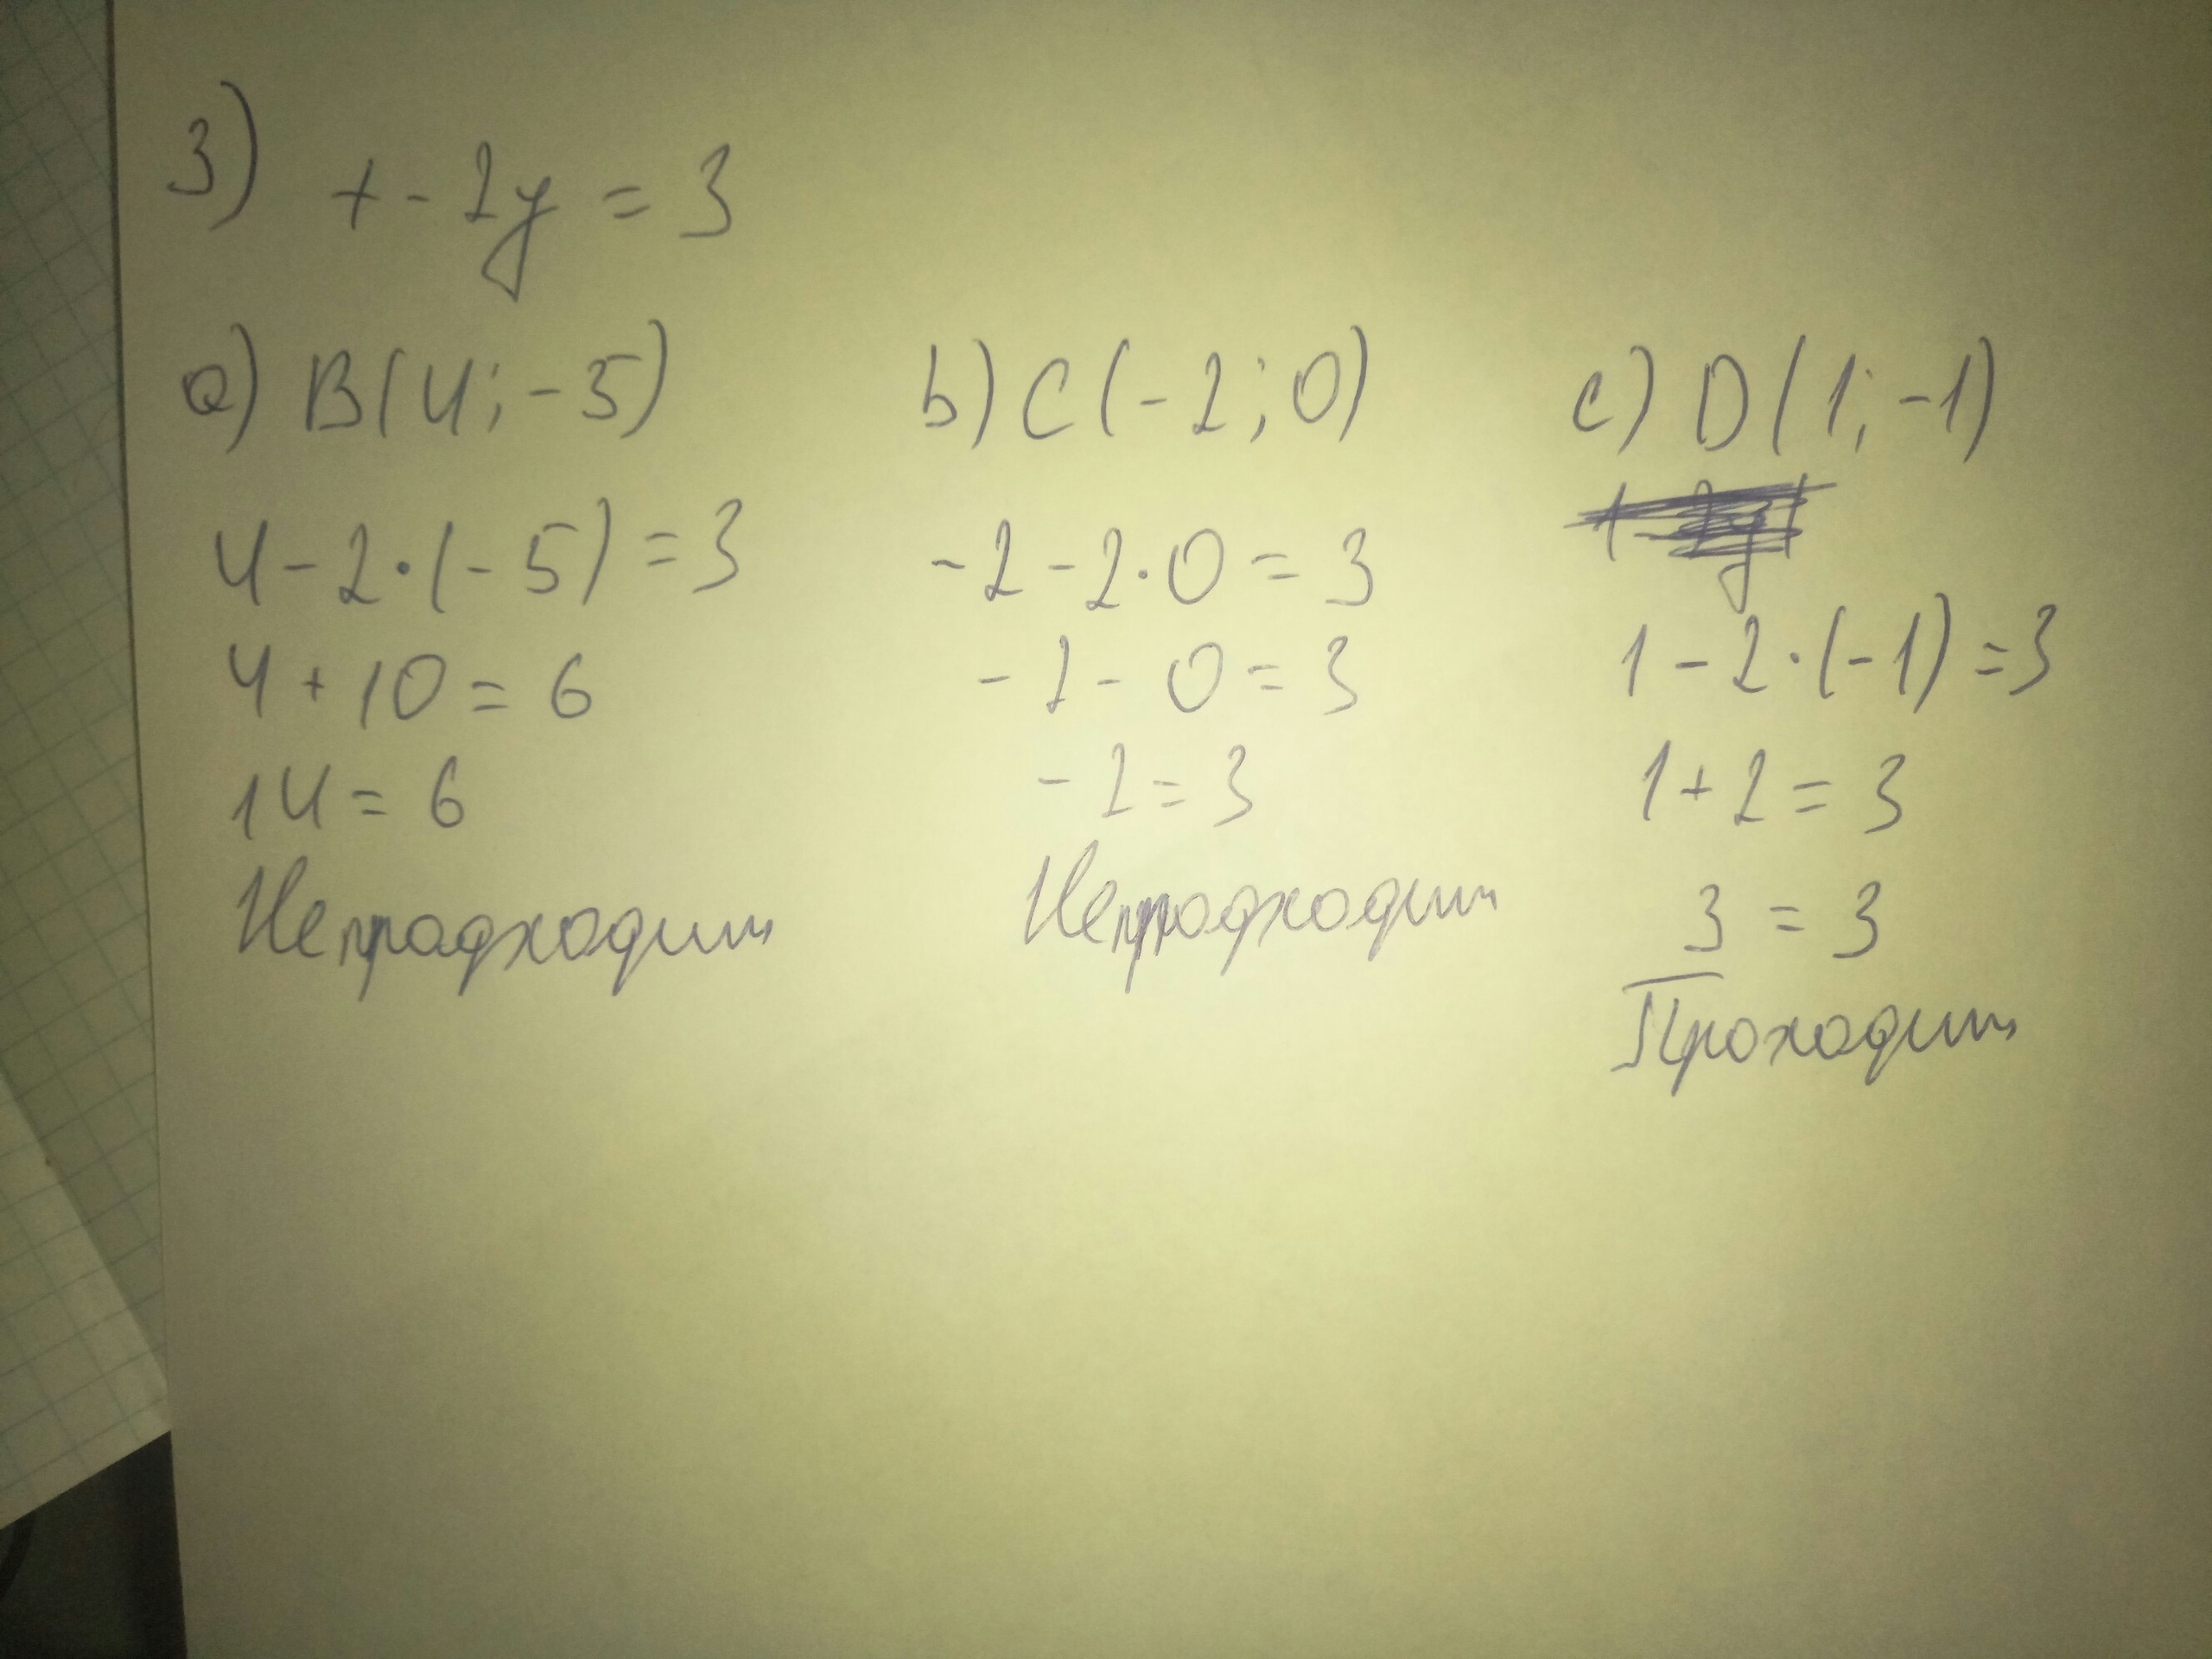 3) x - 2y = 3
a) B(4; -5)
4 - 2·(-5) = 3
4 + 10 = 6
14 = 6
Не прадходит
b) C(-2; 0)
-2 - 2·0 = 3
-2 - 0 = 3
-2 = 3
Не продходит
c) D(1; -1)
1 - 2·(-1) = 3
1 + 2 = 3
3 = 3
Проходит